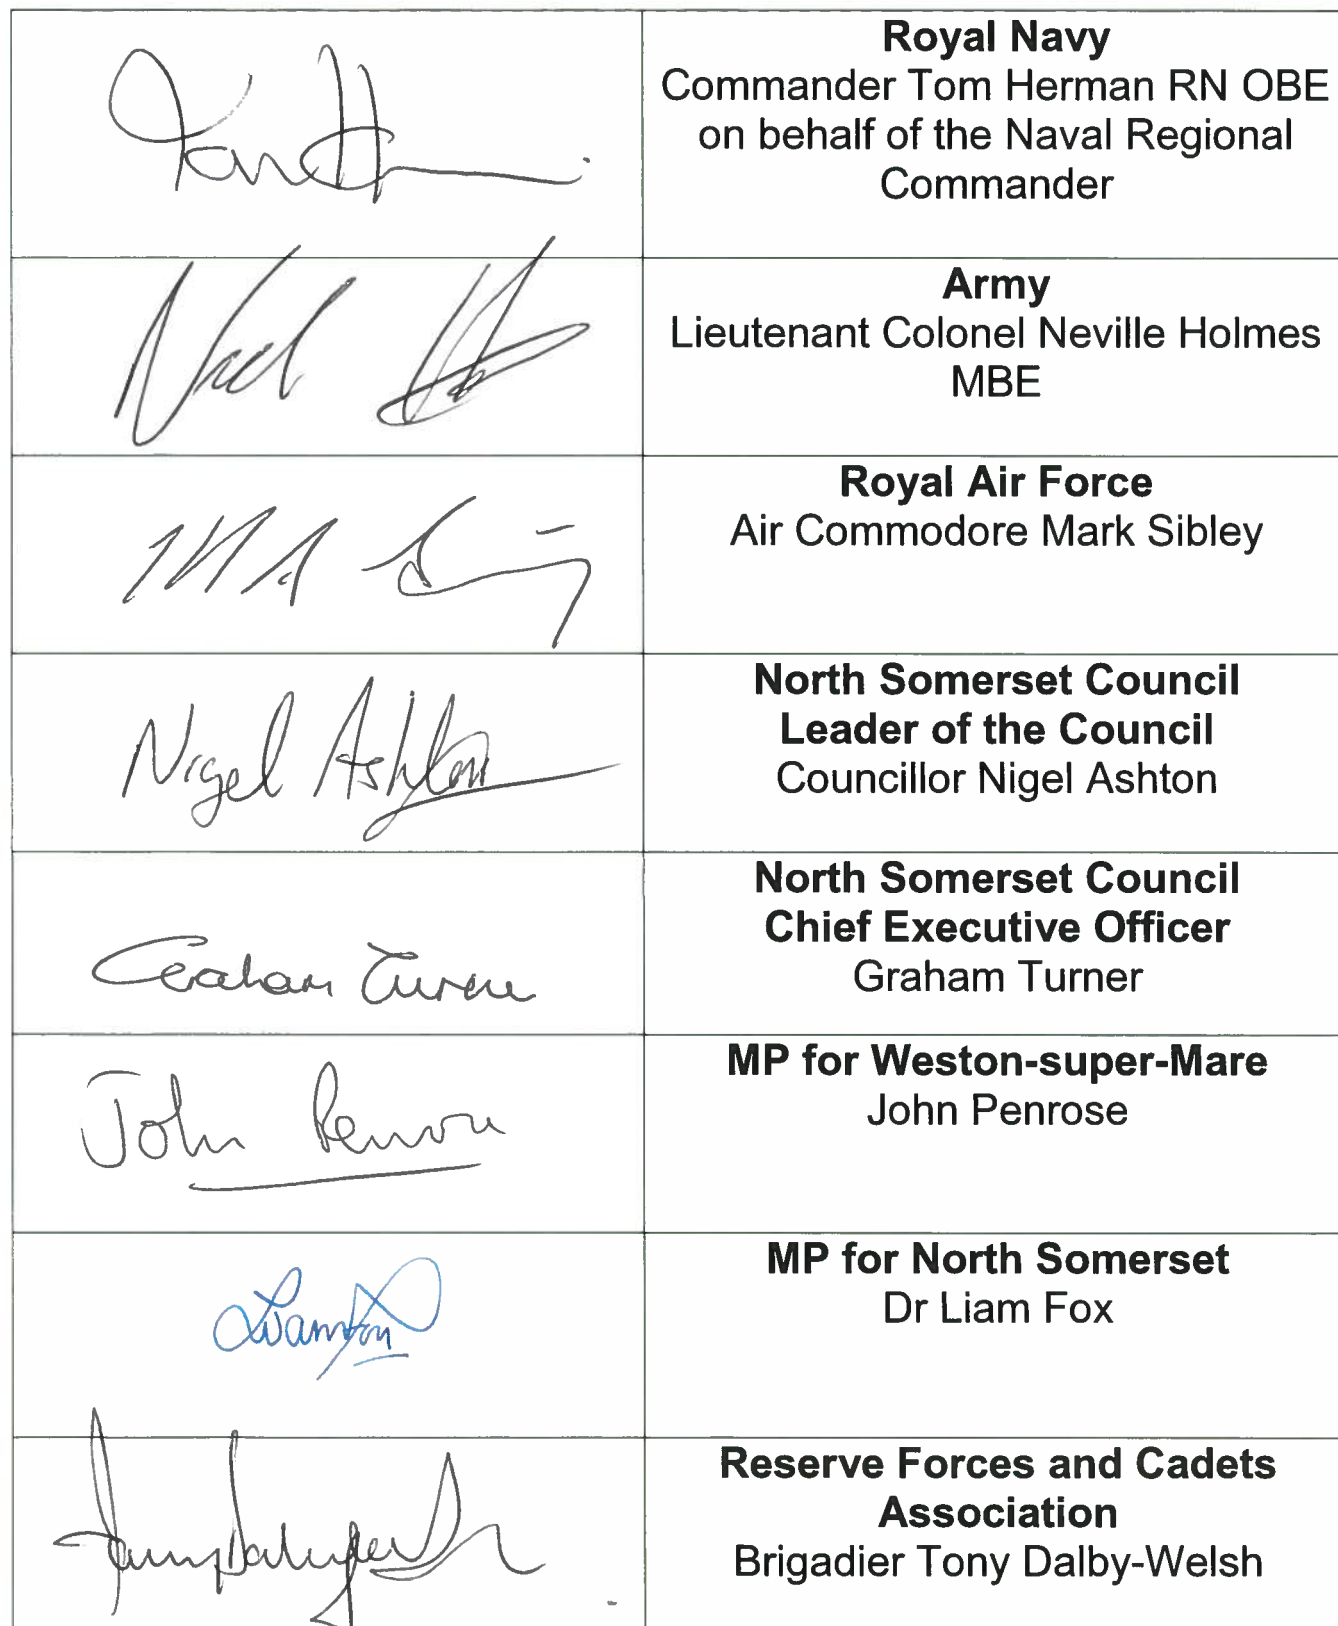 Royal Navy
Commander Tom Herman RN OBE
on behalf of the Naval Regional
Commander
Army
Lieutenant Colonel Neville Holmes
MBE
Royal Air Force
Air Commodore Mark Sibley
Nigel Ashton
North Somerset Council
Leader of the Council
Councillor Nigel Ashton
Graham Turner
North Somerset Council
Chief Executive Officer
Graham Turner
John Penrose
MP for Weston-super-Mare
John Penrose
Liam Fox
MP for North Somerset
Dr Liam Fox
Reserve Forces and Cadets
Association
Brigadier Tony Dalby-Welsh